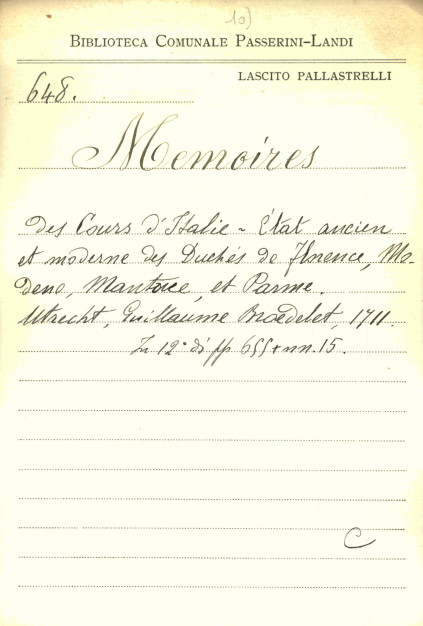 10)
BIBLIOTECA COMUNALE PASSERINI-LANDI
LASCITO PALLASTRELLI
648.
Memoires
des Cours d'Italie - État ancien
et moderne des Duchés de Florence, Mo-
dene, Mantoue, et Parme.
Utrecht, Guillaume Broedelet, 1711.
In 12° di pp 655 + nn. 15.
C